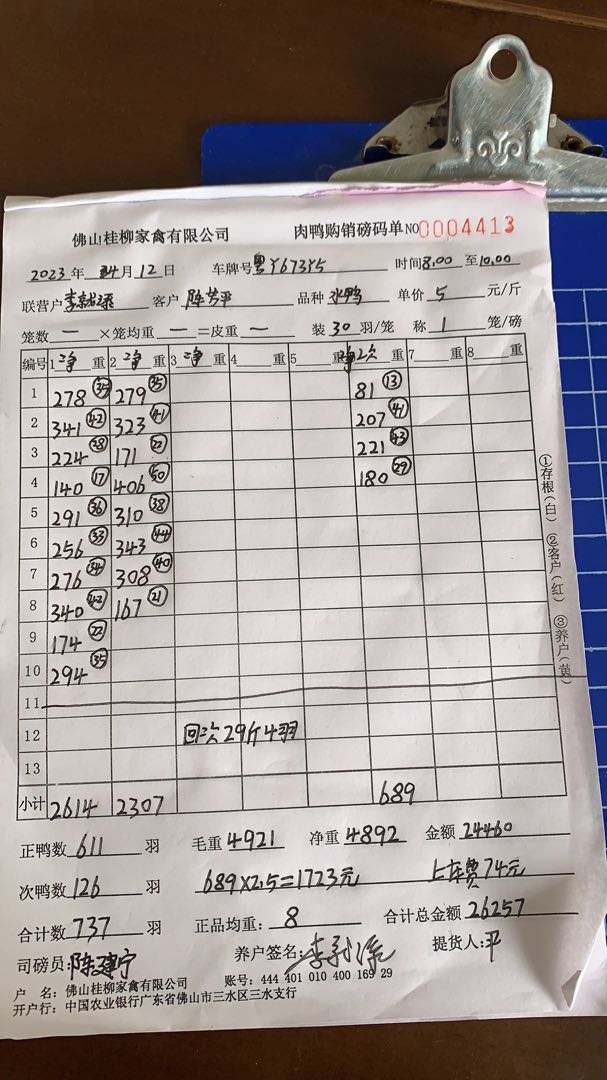 佛山桂柳家禽有限公司 肉鸭购销磅码单 NO 0004413
2023年 月12日 车牌号粤Y673Y5 时间8:00至10:00
联营户 客户 陈芳平 品种 水鸭 单价 5 元/斤
笼数 — ×笼均重 — =皮重 — 装 30 羽/笼 称 1 笼/磅
编号 1净重 2净重 3净重 4 重 5 重 净次重 7 重 8 重
1 278(35) 279(35) 81(13)
2 341(42) 323(41) 207(41)
3 224(28) 171(22) 221(43)
4 140(17) 406(50) 180(29)
5 291(36) 310(38)
6 256(33) 343(44)
7 276(34) 308(40)
8 340(42) 167(21)
9 174(22)
10 294(35)
11
12 回次29斤4羽
13
小计 2614 2307 689
①存根(白) ②客户(红) ③养户(黄)
正鸭数 611 羽 毛重 4921 净重 4892 金额 24460
次鸭数 126 羽 689×2.5=1723元 上车费74元
合计数 737 羽 正品均重: 8 合计总金额 26257
司磅员: 陈建宁 养户签名: 提货人: 平
户 名: 佛山桂柳家禽有限公司 账号: 444 401 010 400 169 29
开户行: 中国农业银行广东省佛山市三水区三水支行